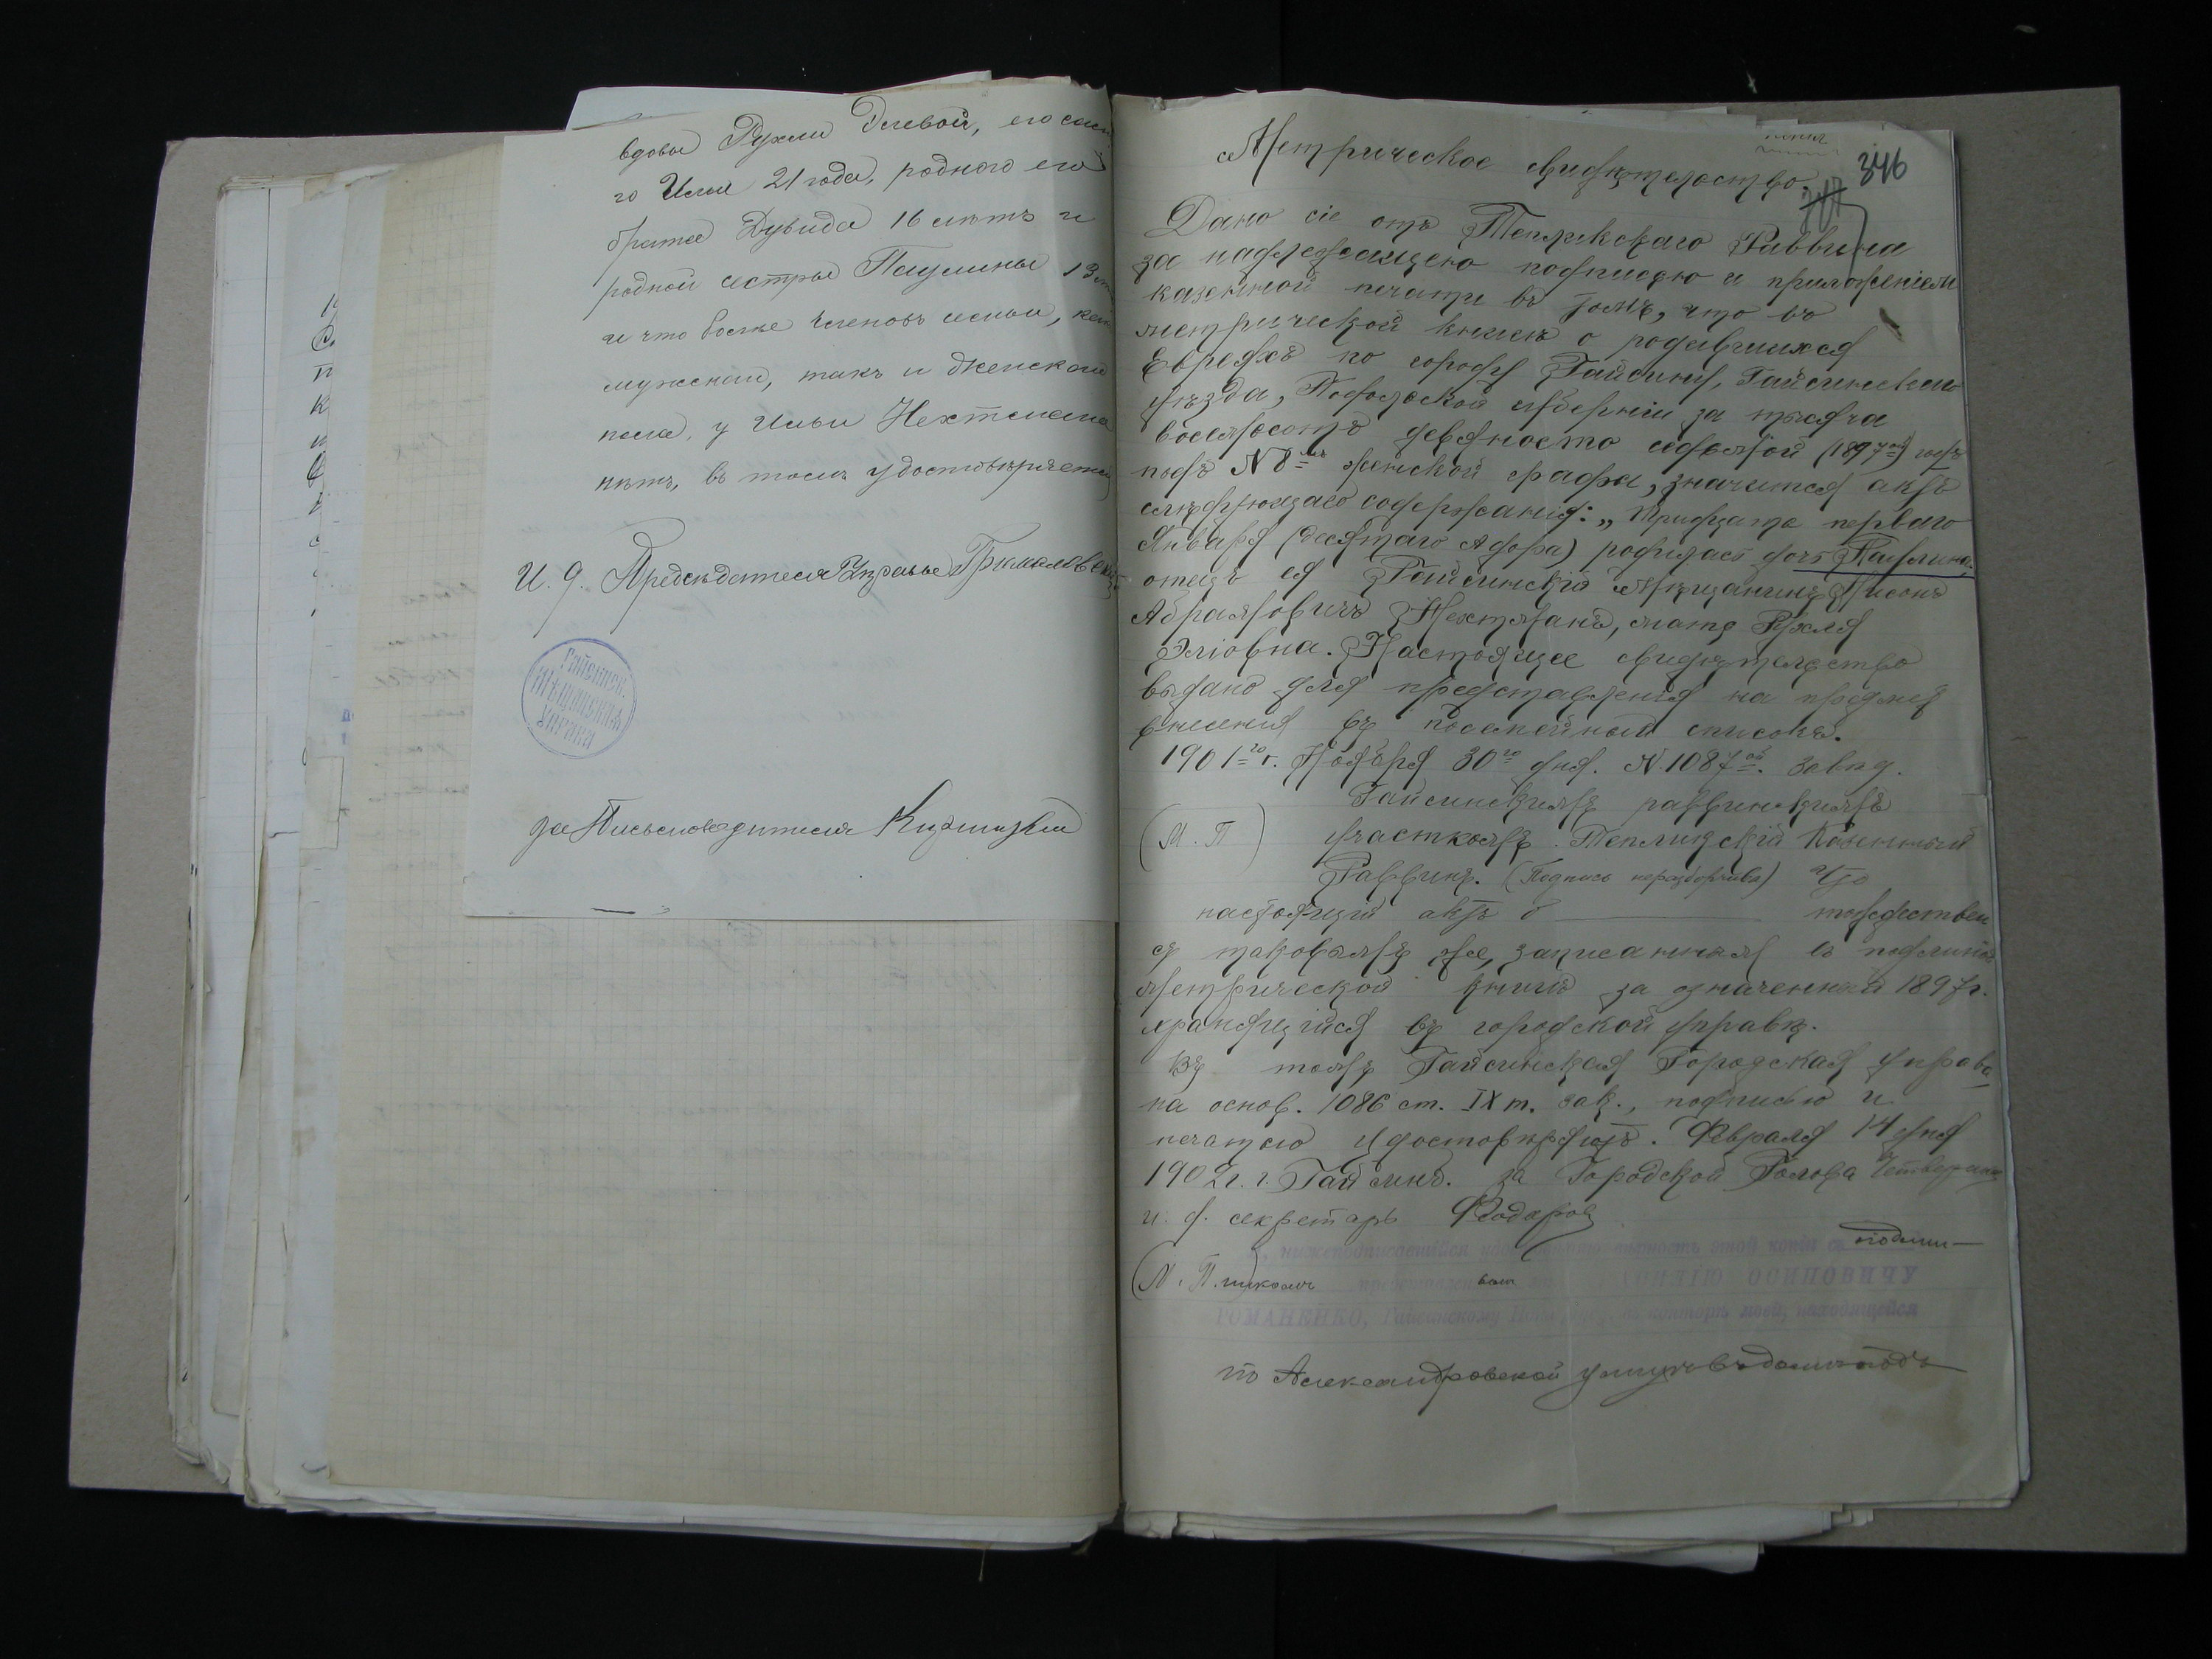 вдовы Рухли Элевой, его само
го Ильи 21 года, родного его
брата Дувида 16 лѣтъ и
родной сестры Паулины 13 лѣ
и что болѣе членовъ семьи, какъ
мужскаго, такъ и женскаго
пола, у Ильи Нехтмана
нѣтъ, въ томъ удостовѣряетъ
И. д. Предсѣдателя Управы
Гайсинск.
Мѣщанская
Управа
за Письмоводителя
копія
346
Метрическое свидѣтельство.
Дано сіе отъ Тепликскаго Раввина
за надлежащею подписью и приложеніемъ
казенной печати въ томъ, что въ
метрической книгѣ о родившихся
Евреяхъ по городу Гайсину, Гайсинскаго
уѣзда, Подольской губерніи за тысяча
восемьсотъ девяносто седьмой (1897ой) годъ
подъ N 8мъ женской графы, значится актъ
слѣдующаго содержанія: „Тридцать перваго
Января (десятаго Адора) родилась дочь Паулина,
отецъ ея Гайсинскій Мѣщанинъ Нисонъ
Абрамовичъ Нехтманъ, мать Рухля
Эліовна. Настоящее свидѣтельство
выдано для представленія на предметъ
внесенія въ посемейный списокъ.
1901го г. Ноября 30го дня. N. 1087ой. Завѣд.
Гайсинскимъ раввинскимъ
(М. П) участкомъ Теплицкій Казенный
Раввинъ. (Подпись неразборчива) Что
настоящій актъ о тождествен
съ таковымъ же, записаннымъ въ подлинной
Метрической книгѣ за означенный 1897 г.
хранящійся въ городской управѣ.
Въ томъ Гайсинская Городская управа
на основ. 1086 ст. IX т. зак., подписью и
печатью удостовѣряетъ. Февраля 14 дня
1902 г. г. Гайсинъ. за Городской Голова
и. д. секретарь Федоров
нижеподписавшійся удостовѣряю вѣрность этой копіи съ подлин-
(М. П. никомъ представленнымъ ОСИПОВИЧУ
РОМАНЕНКО, Гайсинскому Нотаріусу, въ конторѣ моей, находящейся
по Александровской улицѣ въ домѣ подъ